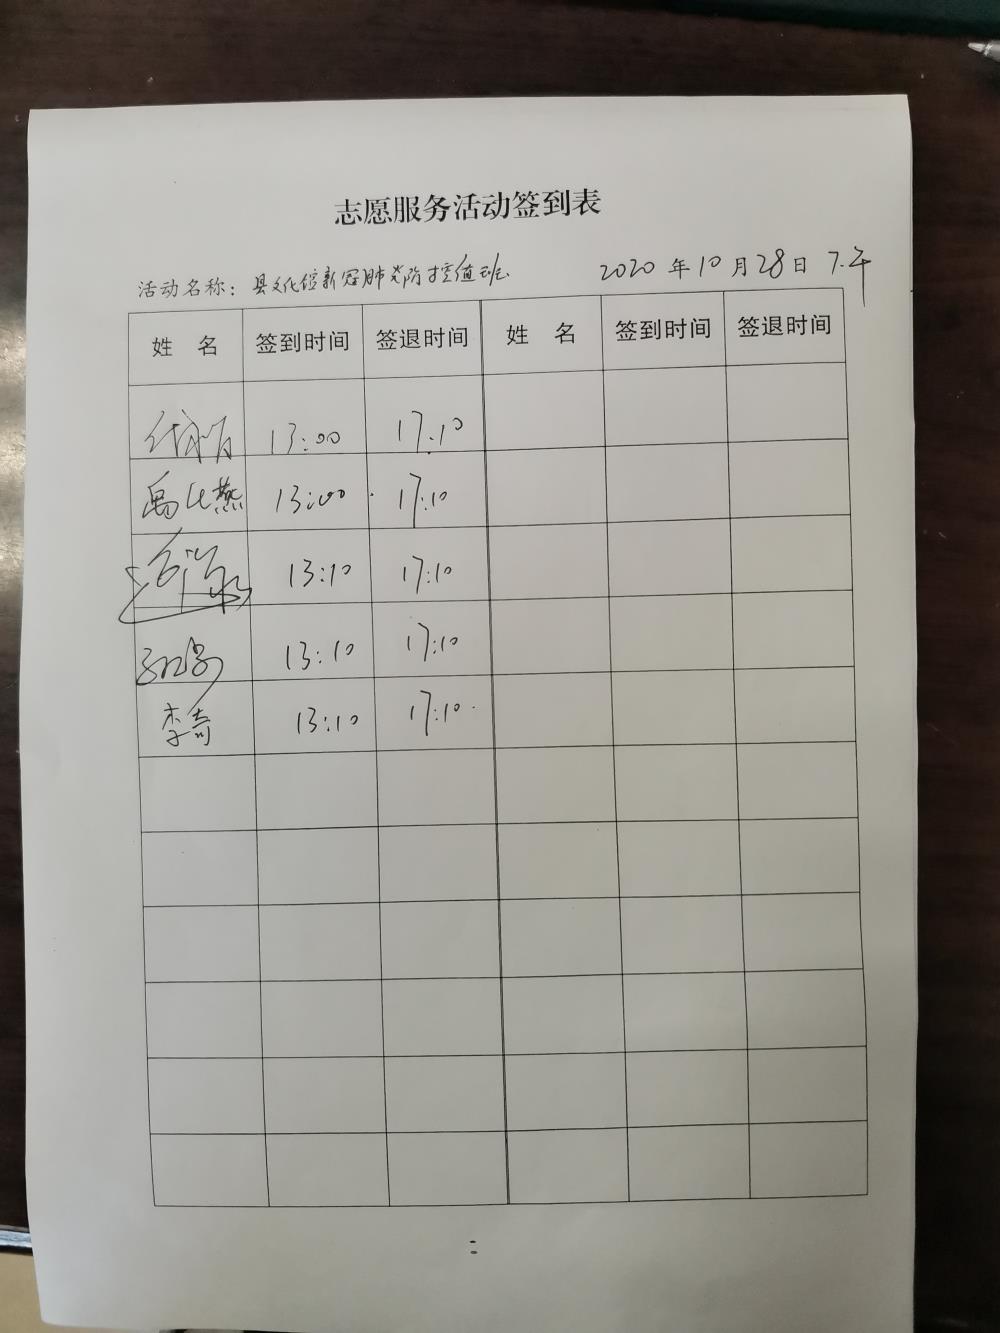 志愿服务活动签到表
活动名称：县文化馆新冠肺炎防控值班
2020年10月28日 下午
姓 名 签到时间 签退时间 姓 名 签到时间 签退时间
13:00 17:10
13:00 17:10
13:10 17:10
13:10 17:10
李奇 13:10 17:10